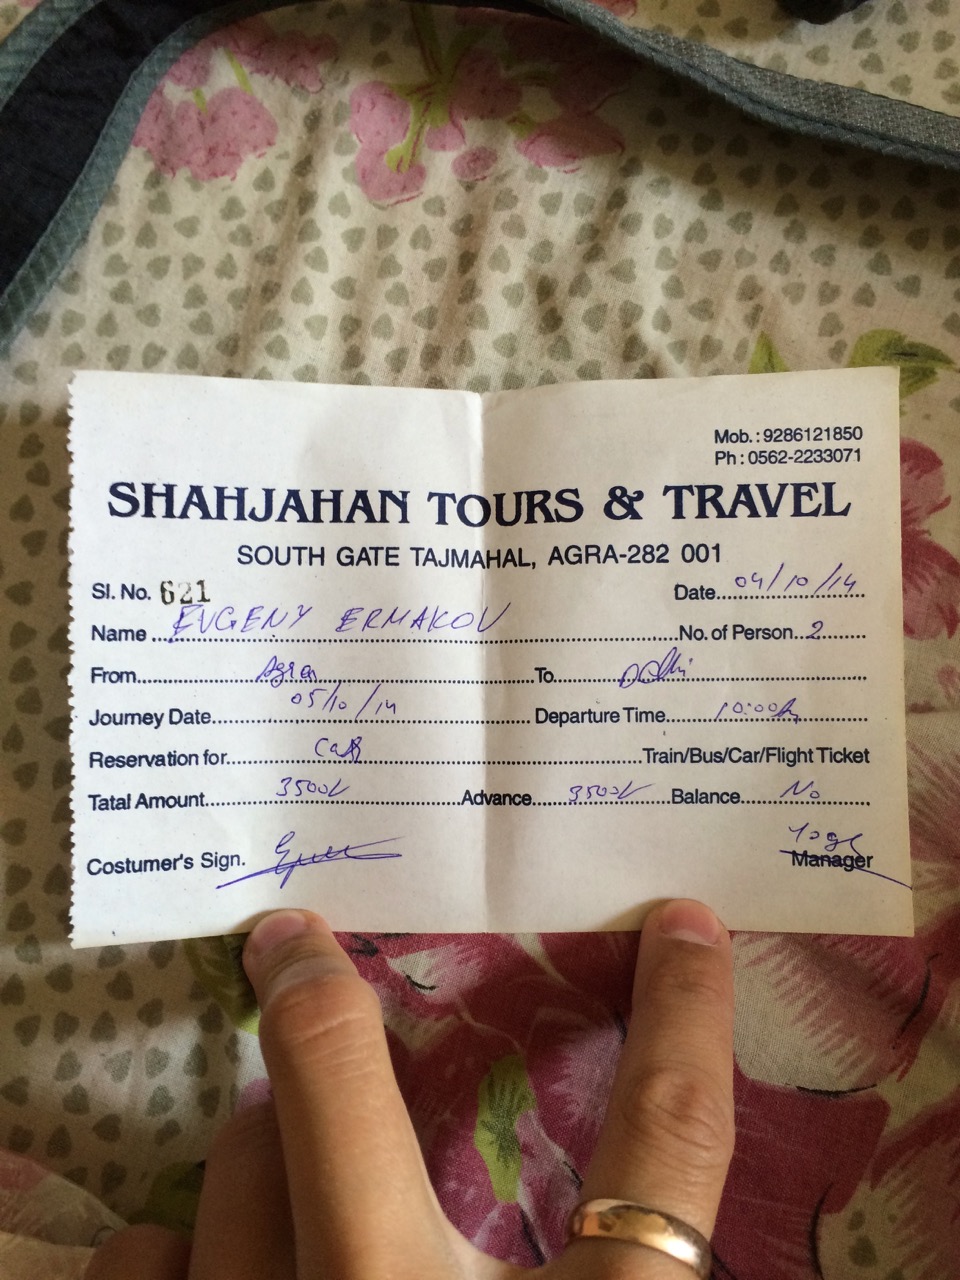 Mob.: 9286121850
Ph : 0562-2233071
SHAHJAHAN TOURS & TRAVEL
SOUTH GATE TAJMAHAL, AGRA-282 001
Sl. No. 621 Date 04/10/14
Name EVGENY ERMAKOV No. of Person 2
From Agra To Delhi
Journey Date 05/10/14 Departure Time 10:00
Reservation for Car Train/Bus/Car/Flight Ticket
Tatal Amount 3500/ Advance 3500/ Balance No
Costumer's Sign. Manager